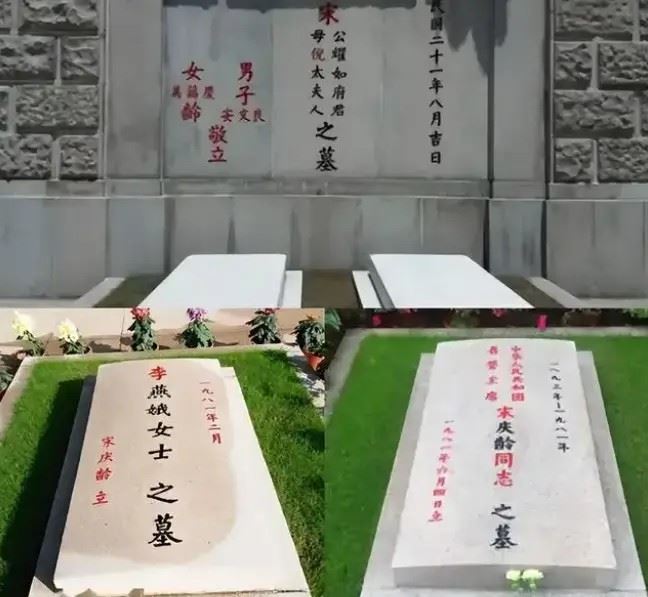 民國二十一年八月吉日
宋
公耀如府君
母倪太夫人
之墓
男子
安文良
女
萬藹慶
齡
敬立
一九八一年二月
李燕娥女士之墓
宋庆齡立
一八九三年—一九八一年
中华人民共和國
名誉主席
宋庆齡同志之墓
一九八一年六月四日立